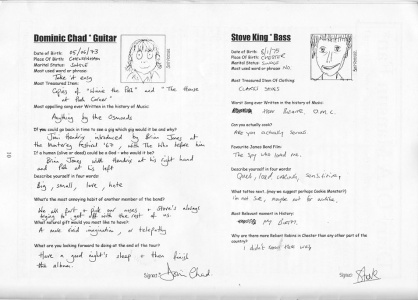 Dominic Chad * Guitar
Date of Birth: 05/06/73
Place Of Birth: CHELTENHAM
Marital Status: SINGLE
Most used word or phrase:
Take it easy
Most Treasured Item:
Copies of "Winnie the Pooh" and "The House
at Pooh Corner"
Most appalling song ever Written in the history of Music:
Anything by the Osmonds
If you could go back in time to see a gig which gig would it be and why?
Jimi Hendrix introduced by Brian Jones at
the Monterey festival '67, with The Who before him
If a human (alive or dead) could be a God - who would it be?
Brian Jones with Hendrix at his right hand
and at his left
Describe yourself in four words:
Big, small, love, hate
What's the most annoying habit of another member of the band?
We all fart & pick our noses & Stove's always
trying to get off with the rest of us.
What natural gift would you most like to have?
A more vivid imagination, or telepathy
What are you looking forward to doing at the end of the tour?
Have a good night's sleep & then finish
the album.
Signed: Dominic Chad.
10
Stove King * Bass
Date of Birth: 8/1/75
Place Of Birth: CHESTER
Marital Status: SINGLE
Most used word or phrase: NO.
Most Treasured Item Of Clothing
CLASSIC SHOES
Worst Song ever Written in the history of Music:
How Bizarre, O.M.C.
Can you actually cook?
Are you actually sound
Favourite James Bond Film:
The spy who loved me.
Describe yourself in four words:
Quiet, good looking, sensitive,
What tattoo next, (may we suggest perhaps Cookie Monster?)
I'm not sure, maybe not for awhile.
Most Relaxed moment in history:
My
Why are there more Saturn Sabres in Chester than any other part of the
country?
I didn't there was
Signed: Stove